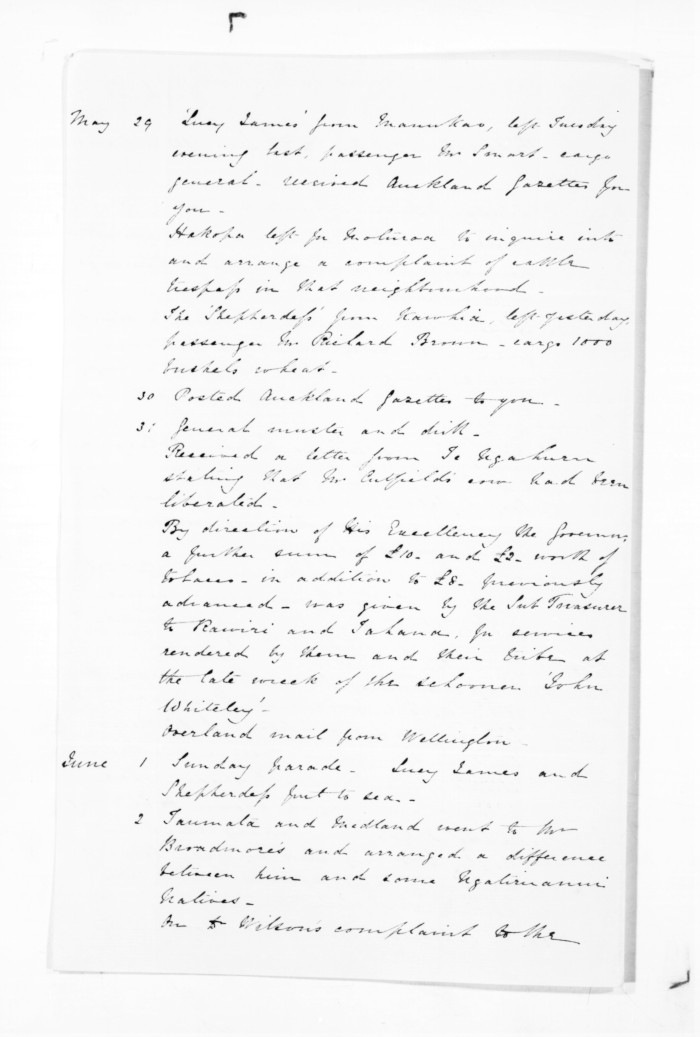 May 29 'Lucy James' from Manukao, left Tuesday
evening last, passenger Mr Smart - cargo
general - received Auckland Gazettes for
you -
Hakopa left for Moturoa to inquire into
and arrange a complaint of cattle
trespass in that neighbourhood -
The 'Shepherdess' from Kawhia, left yesterday,
passenger Mr Richard Brown - cargo 1000
bushels wheat -
30 Posted Auckland Gazettes to you -
31 General muster and drill -
Received a letter from Te Ngahuru
stating that Mr Cutfield's cow had been
liberated -
By direction of His Excellency the Governor,
a further sum of £10 - and £2 - worth of
tobacco - in addition to £8 - previously
advanced - was given by the Sub Treasurer
to Rawiri and Tahana, for services
rendered by them and their tribe at
the late wreck of the schooner 'John
Whiteley' -
Overland mail from Wellington -
June 1 Sunday parade - Lucy James and
Shepherdess put to sea -
2 Taumata and Medland went to Mr
Broadmore's and arranged a difference
between him and some Ngatiruanui
Natives -
On Wilson's complaint to the